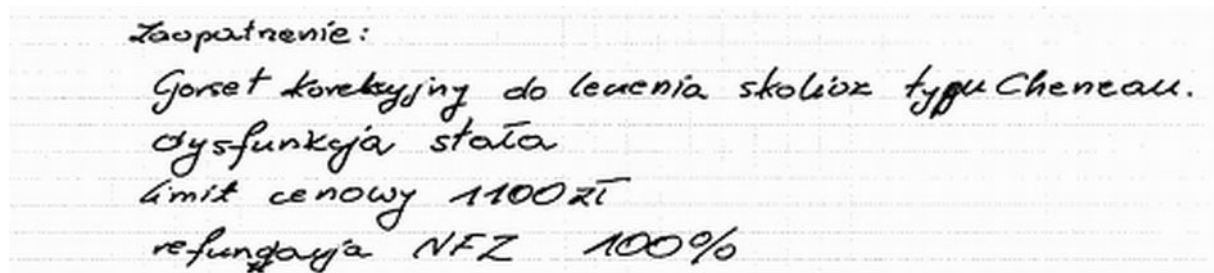 Zaopatrzenie:
Gorset korekcyjny do leczenia skolioz typu Cheneau.
dysfunkcja stała
limit cenowy 1100 zł
refundacja NFZ 100%